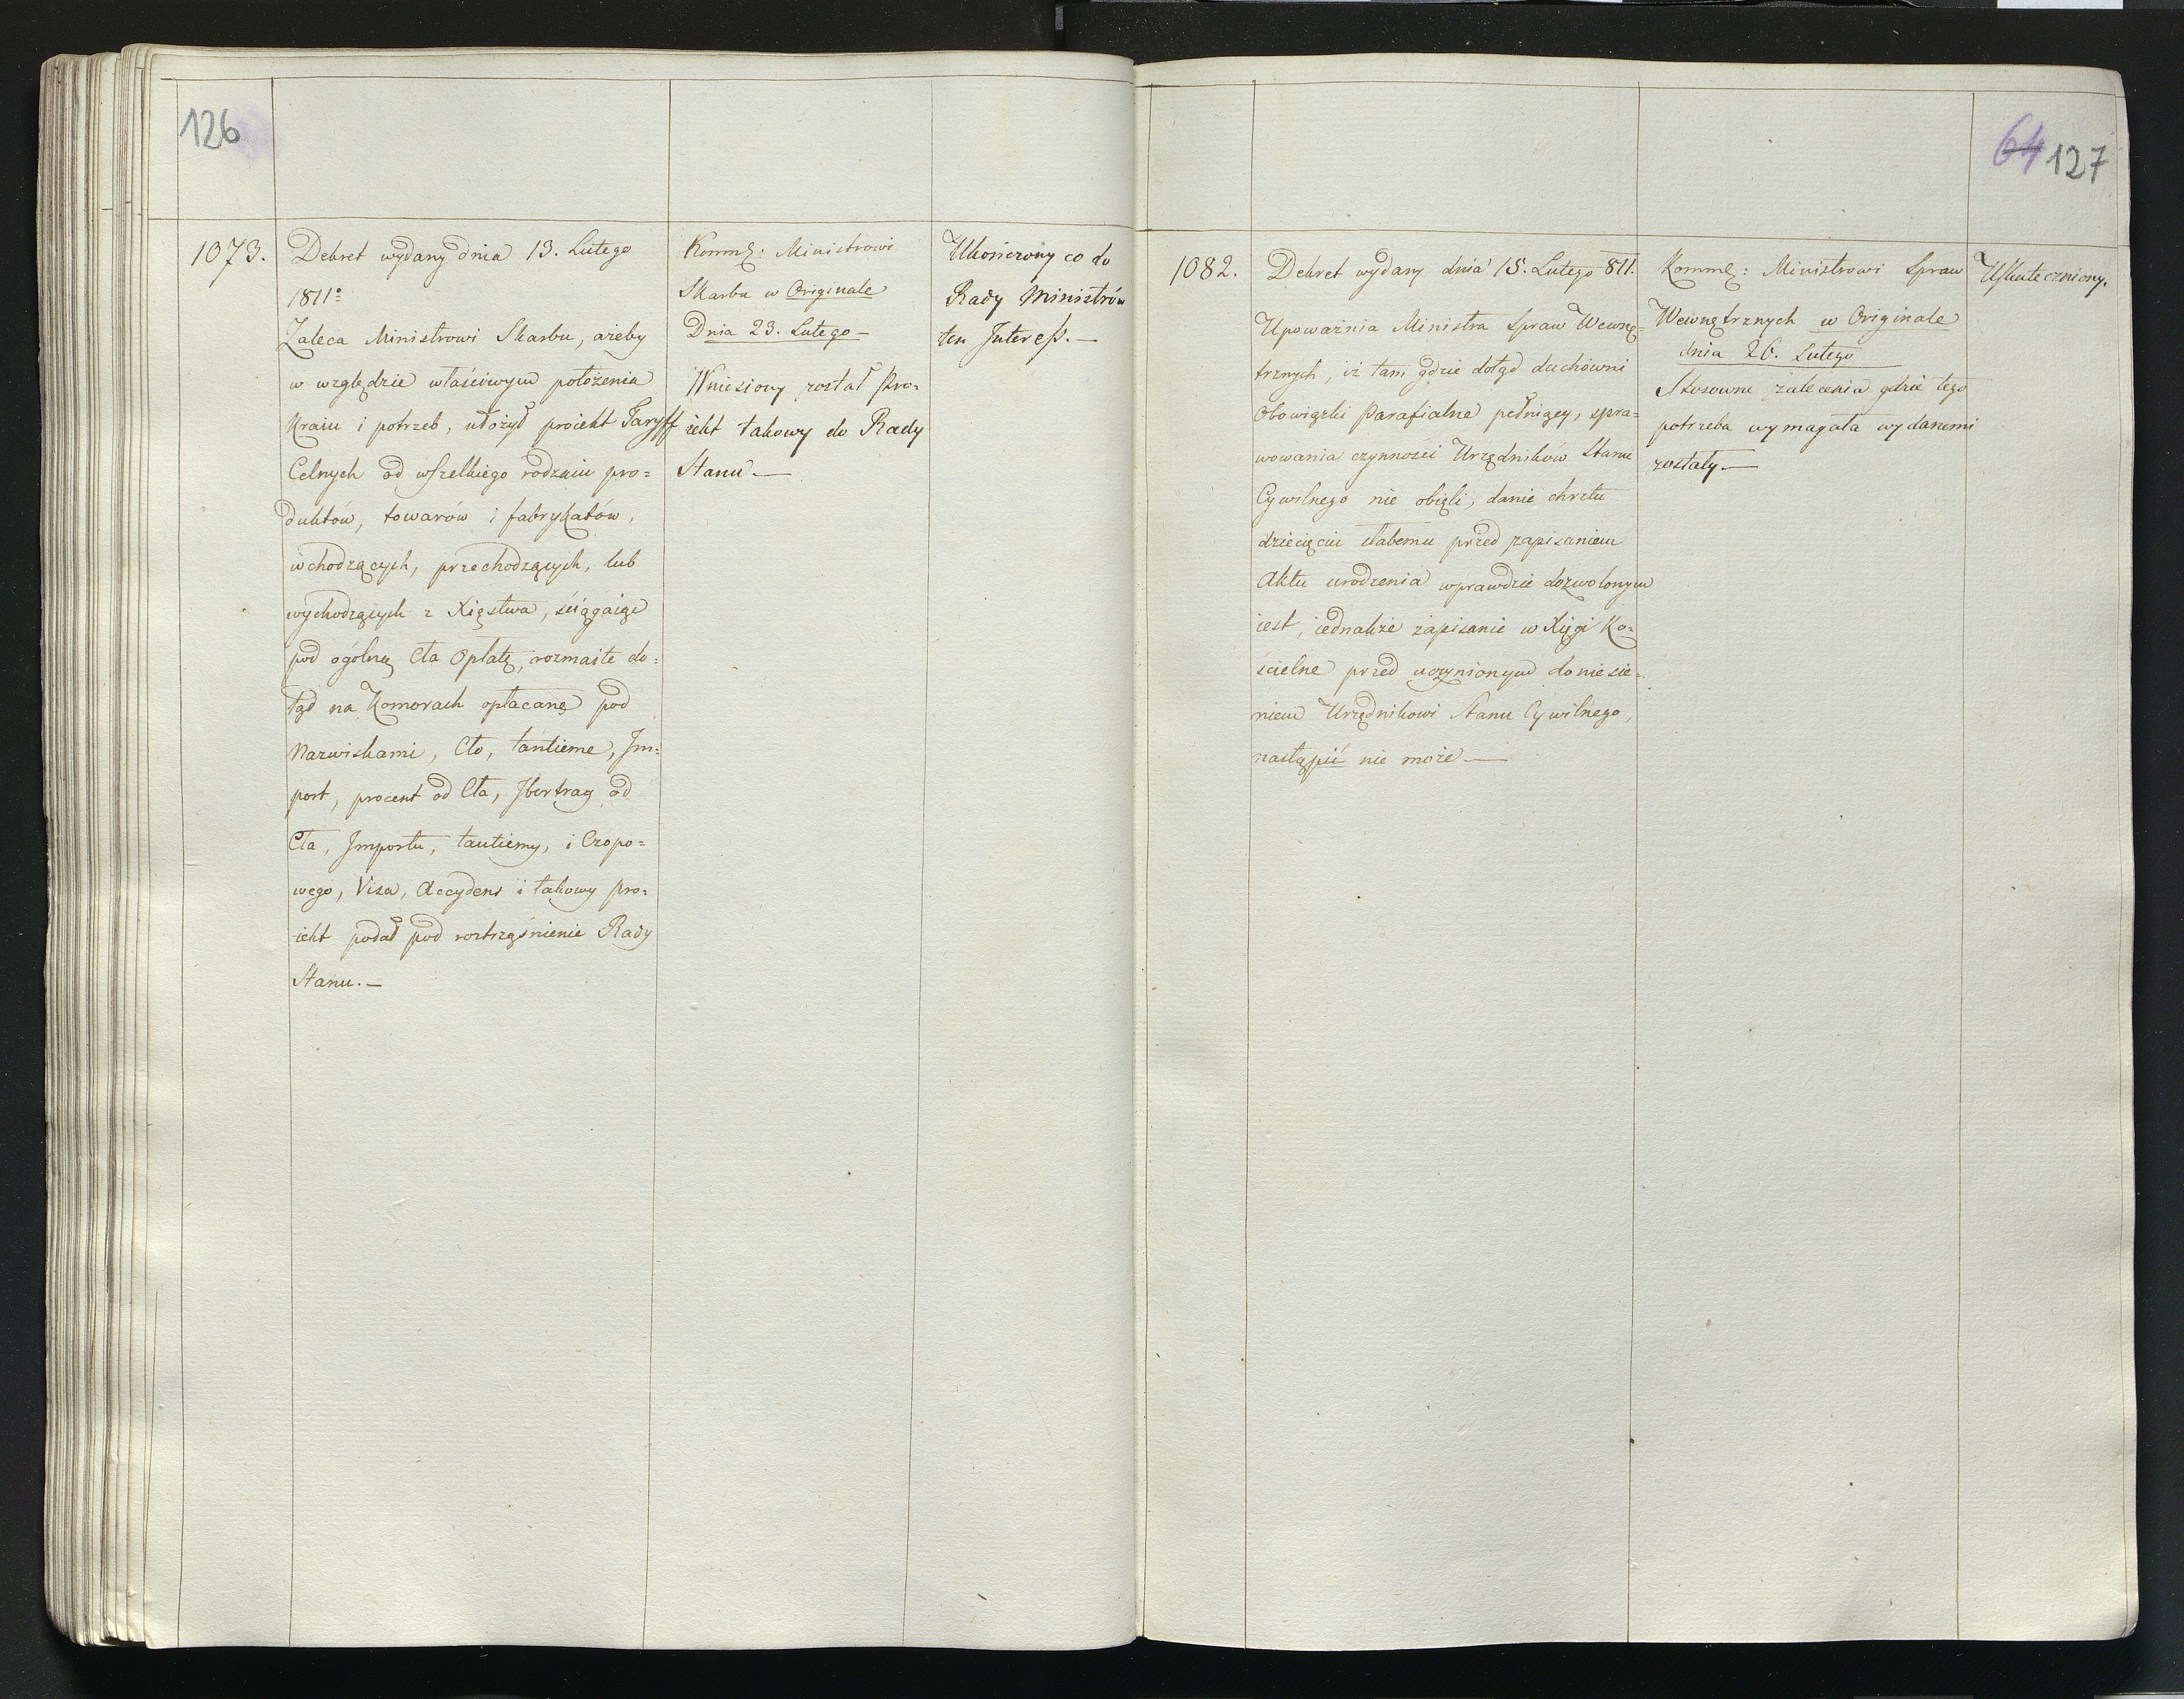 126
1073.
Dekret wydany dnia 13. Lutego
1811º
Zaleca Ministrowi Skarbu, ażeby
w względzie właściwym położenia
Kraiu i potrzeb, ułożył proiekt Taryff
Celnych od wszelkiego rodzaiu pro=
duktów, towarów i fabrykatów,
wchodzących, przechodzących, lub
wychodzących z Xięstwa, ściągaiąc
pod ogólną Cła Opłatę, rozmaite do=
tąd na Komorach opłacane pod
Nazwiskami, Cło, tantieme, Im=
port, procent od Cła, Ibertrag od
Cła, Importu, tantiemy, i Czopo=
wego, Visa, Accydens i takowy pro=
iekt podał pod roztrząśnienie Rady
Stanu. —
Komm: Ministrowi
Skarbu w Originale
Dnia 23. Lutego —
Wniesiony został Pro=
iekt takowy do Rady
Stanu —
Ukończony co do
Rady Ministrów
ten Interess. —
64 127
1082.
Dekret wydany dnia 15. Lutego 811.
Upoważnia Ministra Spraw Wewnę=
trznych, iż tam gdzie dotąd duchowni
Obowiązki Parafialne pełniący, spra=
wowania czynności Urzędników Stanu
Cywilnego nie obięli, danie chrztu
dziecięciu słabemu przed zapisaniem
Aktu urodzenia wprawdzie dozwolonym
iest, iednakże zapisanie w Xięgi Ko=
ścielne przed uczynionym doniesie=
niem Urzędnikowi Stanu Cywilnego,
nastąpić nie może —
Komm: Ministrowi Spraw
Wewnętrznych w Originale
dnia 26. Lutego
Stosowne zalecenia gdzie tego
potrzeba wymagała wydanemi
zostały. —
Uskuteczniony.